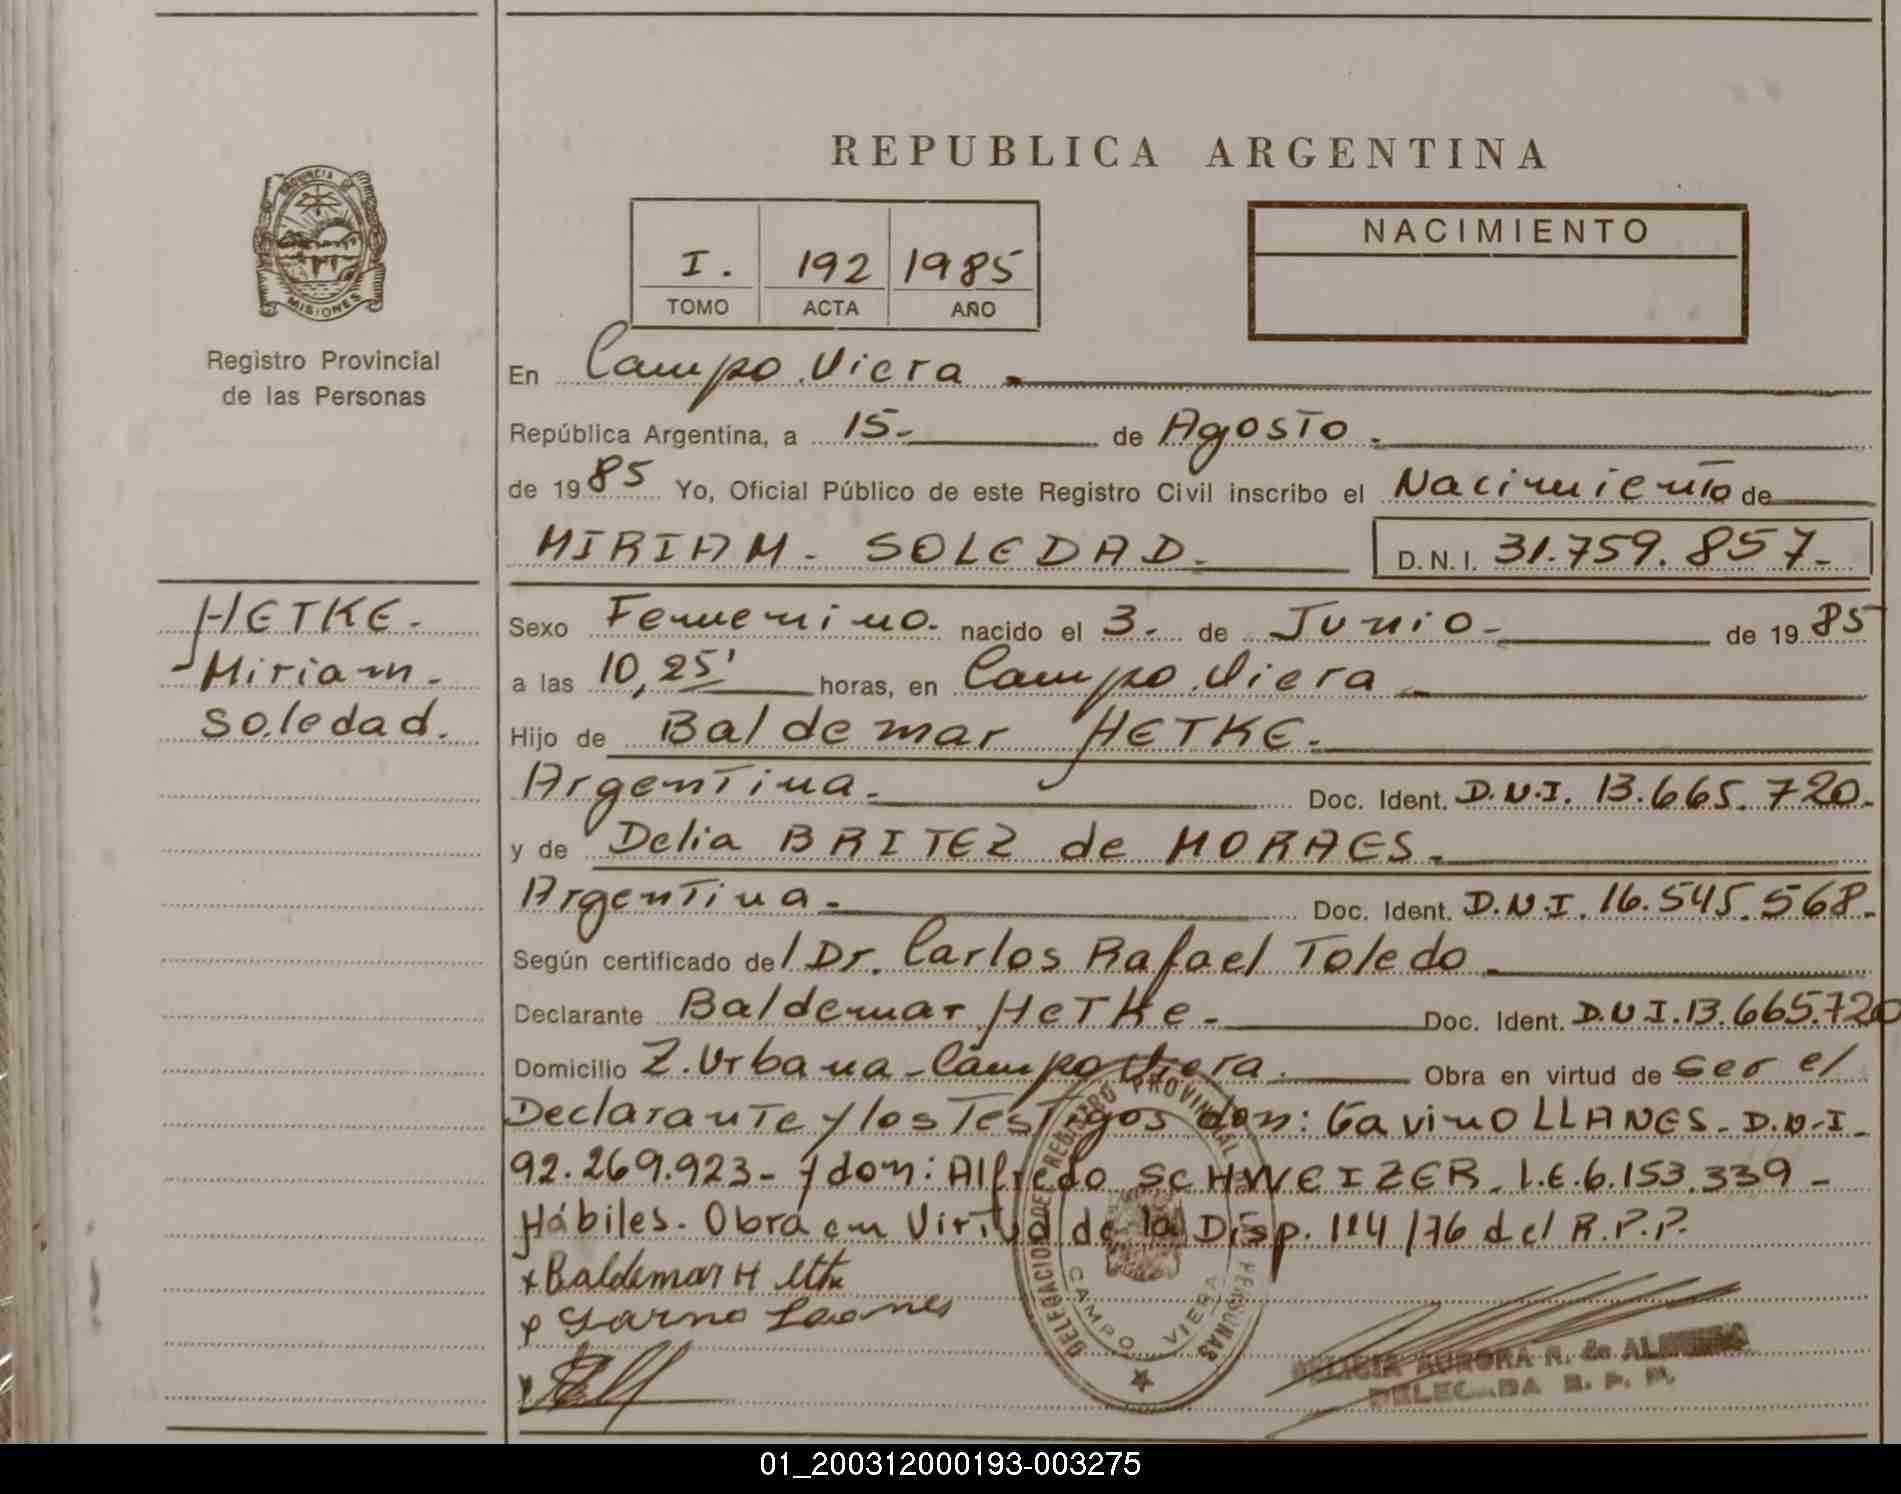 REPUBLICA ARGENTINA
PROVINCIA DE
MISIONES
Registro Provincial
de las Personas
I. 192 1985
TOMO ACTA AÑO
NACIMIENTO
En Campo Viera
República Argentina, a 15- de Agosto.
de 1985 Yo, Oficial Público de este Registro Civil inscribo el Nacimiento de
MIRIAM - SOLEDAD.
D.N.I. 31.759.857-
HETKE.
Miriam.
Soledad.
Sexo Femenino. nacido el 3. de Junio- de 1985
a las 10,25' horas, en Campo Viera
Hijo de Baldemar HETKE.
Argentina. Doc. Ident. D.N.I. 13.665.720.
y de Delia BRITEZ de MORAES.
Argentina. Doc. Ident. D.N.I. 16.545.568.
Según certificado del Dr. Carlos Rafael Toledo
Declarante Baldemar HETKE. Doc. Ident. D.N.I. 13.665.720
Domicilio Z. Urbana - Campo Viera. Obra en virtud de ser el
Declarante y los Testigos don: Gavino LLANES. D.N.I.
92.269.923- y don: Alfredo SCHWEIZER. L.E. 6.153.339 -
Hábiles. Obra en Virtud de la Disp. 114/76 del R.P.P.
DELEGACION DEL REGISTRO PROVINCIAL DE LAS PERSONAS
CAMPO VIERA
x Baldemar H
AURORA R. de
DELEGADA R. P. P.
01_200312000193-003275